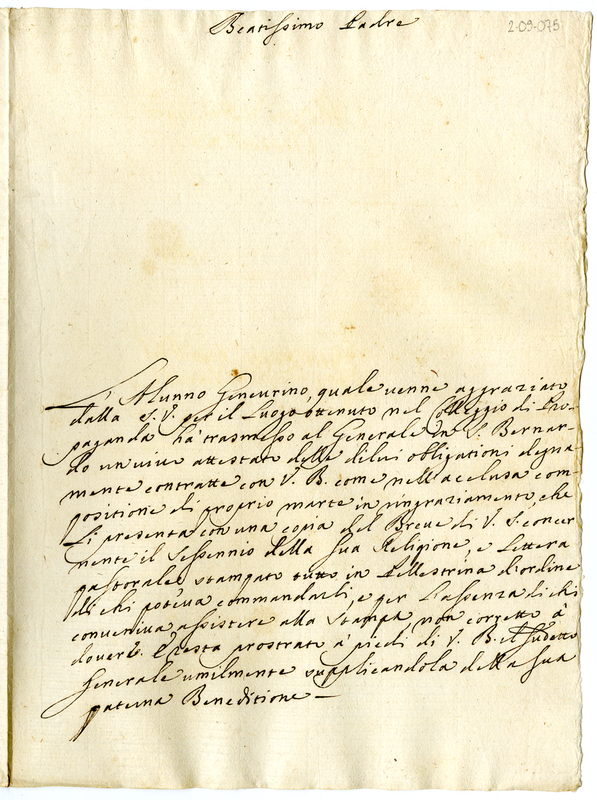 Beatissimo Padre
2-09-075
L'Alunno Geneurino, quale venne aggraziato
dalla S. V. per il Luogo ottenuto nel Colleggio di Pro-
paganda ha trasmesso al Generale in S. Bernar-
do un vivo attestato delle di lui obligationi degna
mente contratte con V. B. come nell'acclusa com-
positione di proprio marte in ringraziamento, che
Li presenta con una copia del Breve di V. S. concer
nente il Sessennio della sua Religione, e Lettera
pastorale stampato tutto in Pellestrina d'ordine
di chi poteva commandarli, e per l'assenza di chi
conveniva assistere alla Stampa, non corretto à
dovere. E resta prostrato à piedi di V. B. il sudetto
Generale umilmente supplicandola della sua
paterna Beneditione —